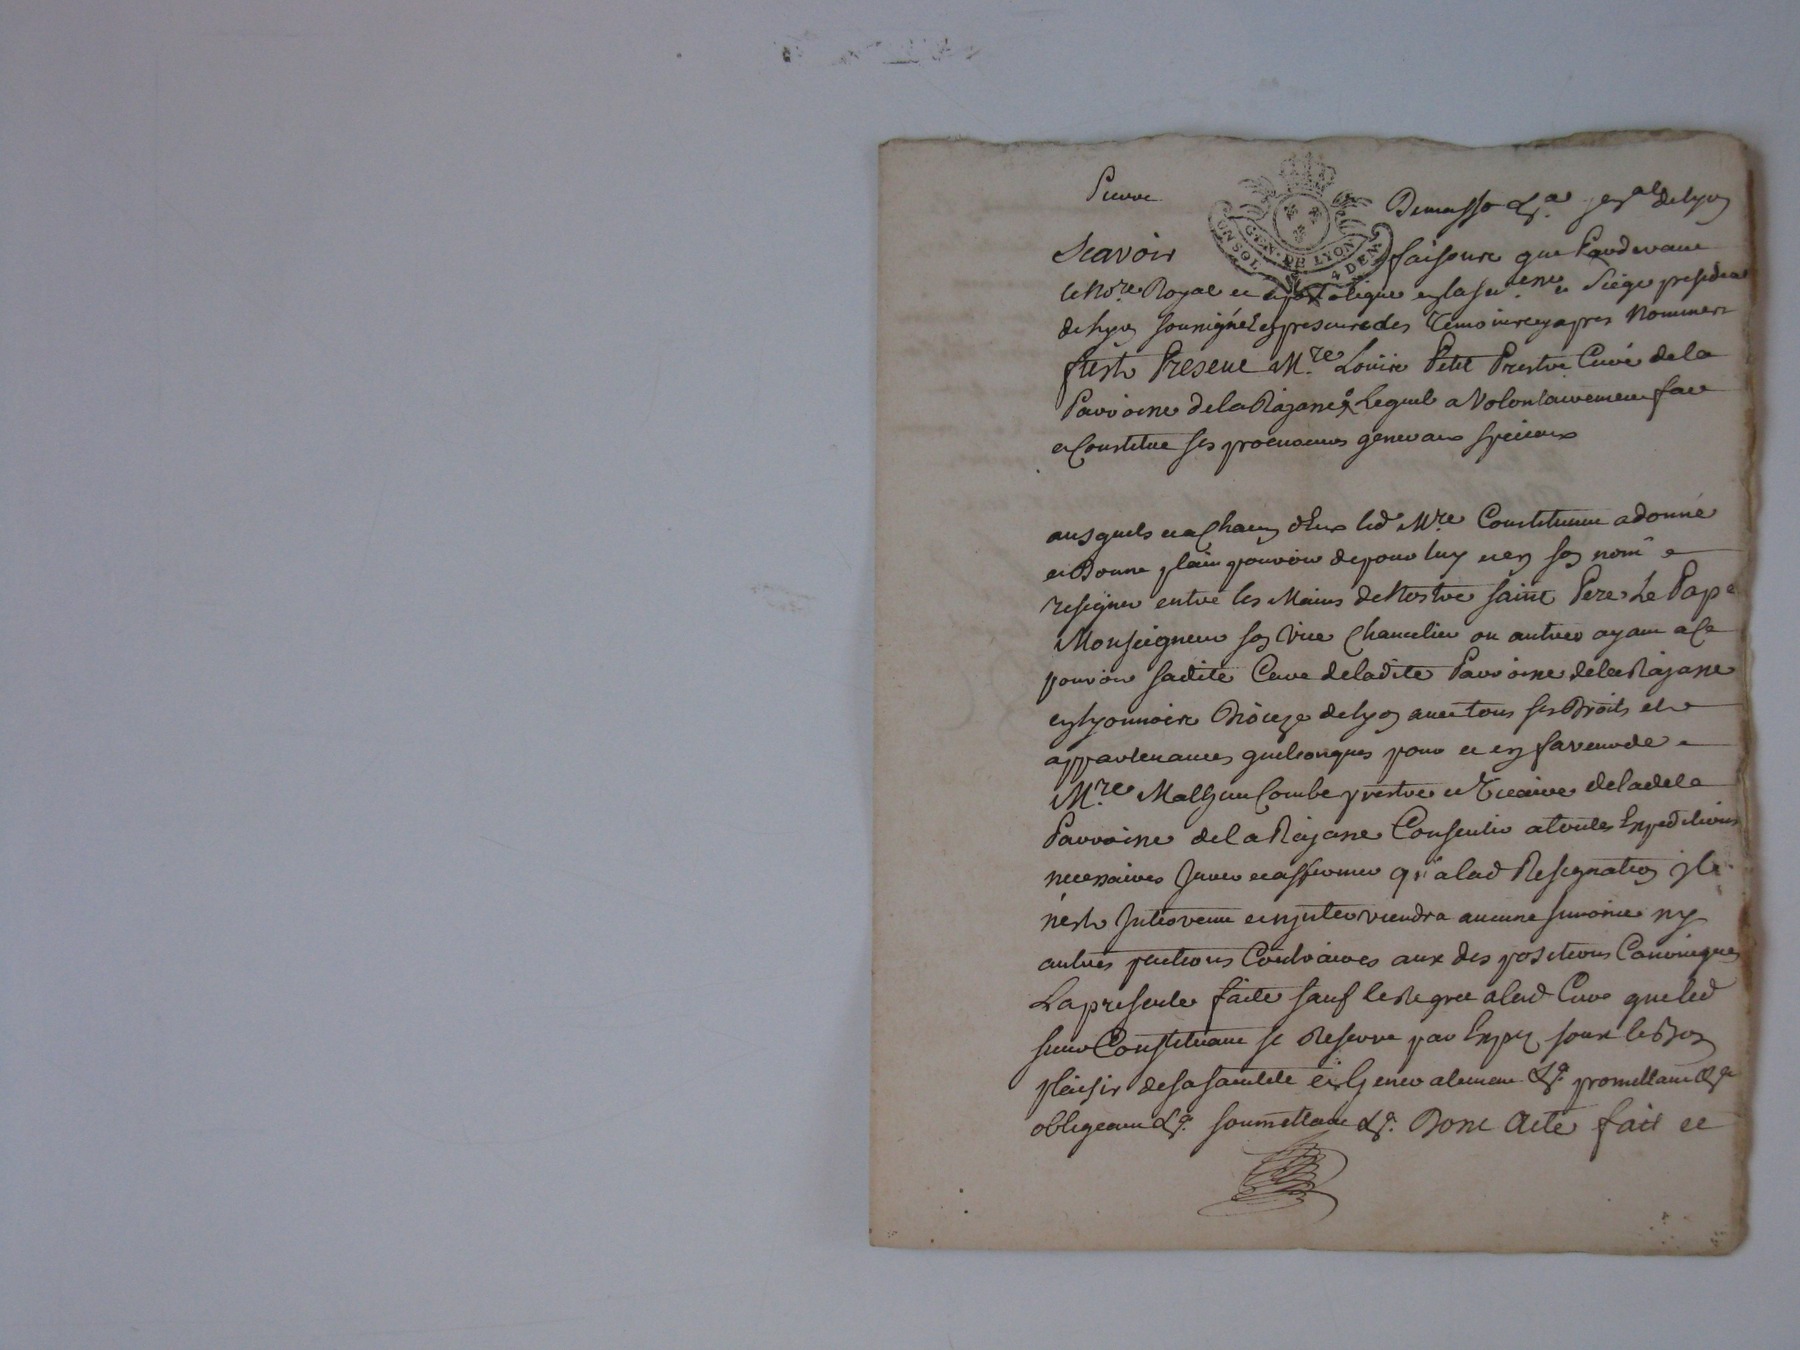 Pierre Demasso &a genal de Lyon
GEN. DE LYON
UN SOL 4 DEN
Scavoir faisons que Pardevant
le Nore Royal et apostolique en la senene et Siege presidial
de Lyon soussigné et presence des Temoins cy apres Nommers
fust Present Mre Louis Petit Prestre Curé de la
Parroisse de la Rajasse Lequel a Volontairement fait
et Constitue ses procureurs generaux speciaux
ausquels et a Chacun d'Eux led Mre Constituant a donné
et Donne plain pouvoir de pour luy et en son nom
resigner entre les Mains de Nostre saint Pere Le Pape
Monseigneur son Vice Chancelier ou autres ayant a ce
pouvoir sadite Cure de ladite Parroisse de la Rajasse
en Lyonnois Dioceze de Lyon avec tous ses Droits et
appartenances quelconques pour et en faveur de
Mre Mathieu Combe prestre et Vicaire de lad
Parroisse de la Rajasse Consentir a toutes Expeditions
necessaires Jurer et affirmer qu'a lad Resignation il
n'est Intervenu et n'interviendra aucune simonie ny
autres pactions Contraires aux dispositions Canoniques
La presente faite sauf le Regrez a lad Cure que led
sieur Constituant se Reserve par Exprez sous le Bon
plaisir de sa sainteté et Generalement &a promettant &a
obligeant &a soumettant &a Dont Acte fait et